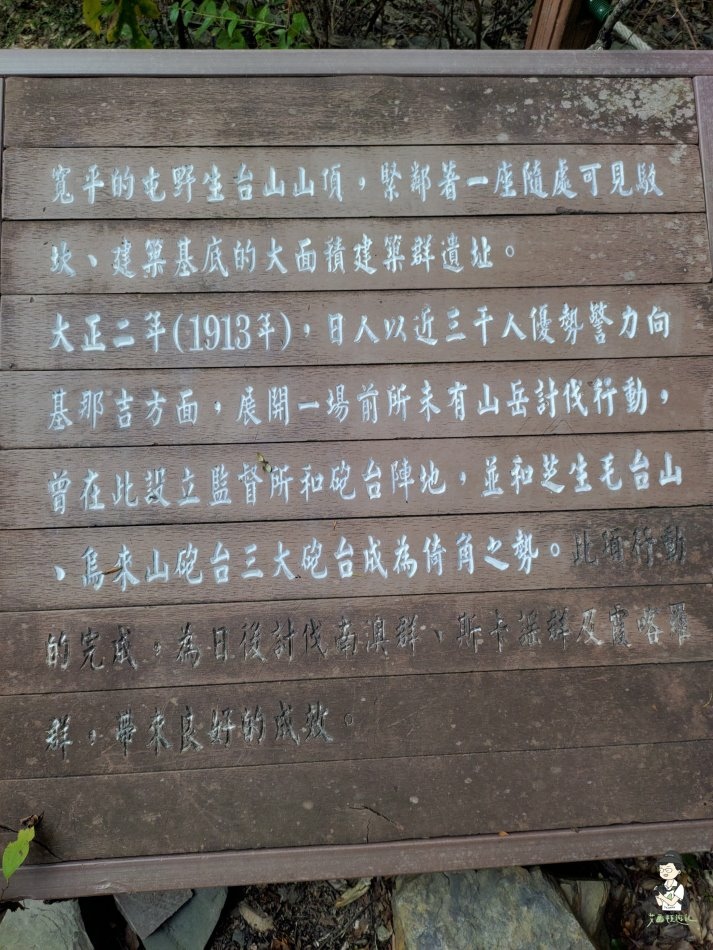 寬平的屯野生台山山頂，緊鄰著一座隨處可見駁
坎、建築基底的大面積建築群遺址。
大正二年(1913年)，日人以近三千人優勢警力向
基那吉方面，展開一場前所未有山岳討伐行動，
曾在此設立監督所和砲台陣地，並和芝生毛台山
、烏來山砲台三大砲台成為倚角之勢。此項行動
的完成，為日後討伐南澳群、斯卡謠群及霞喀羅
群，帶來良好的成效。